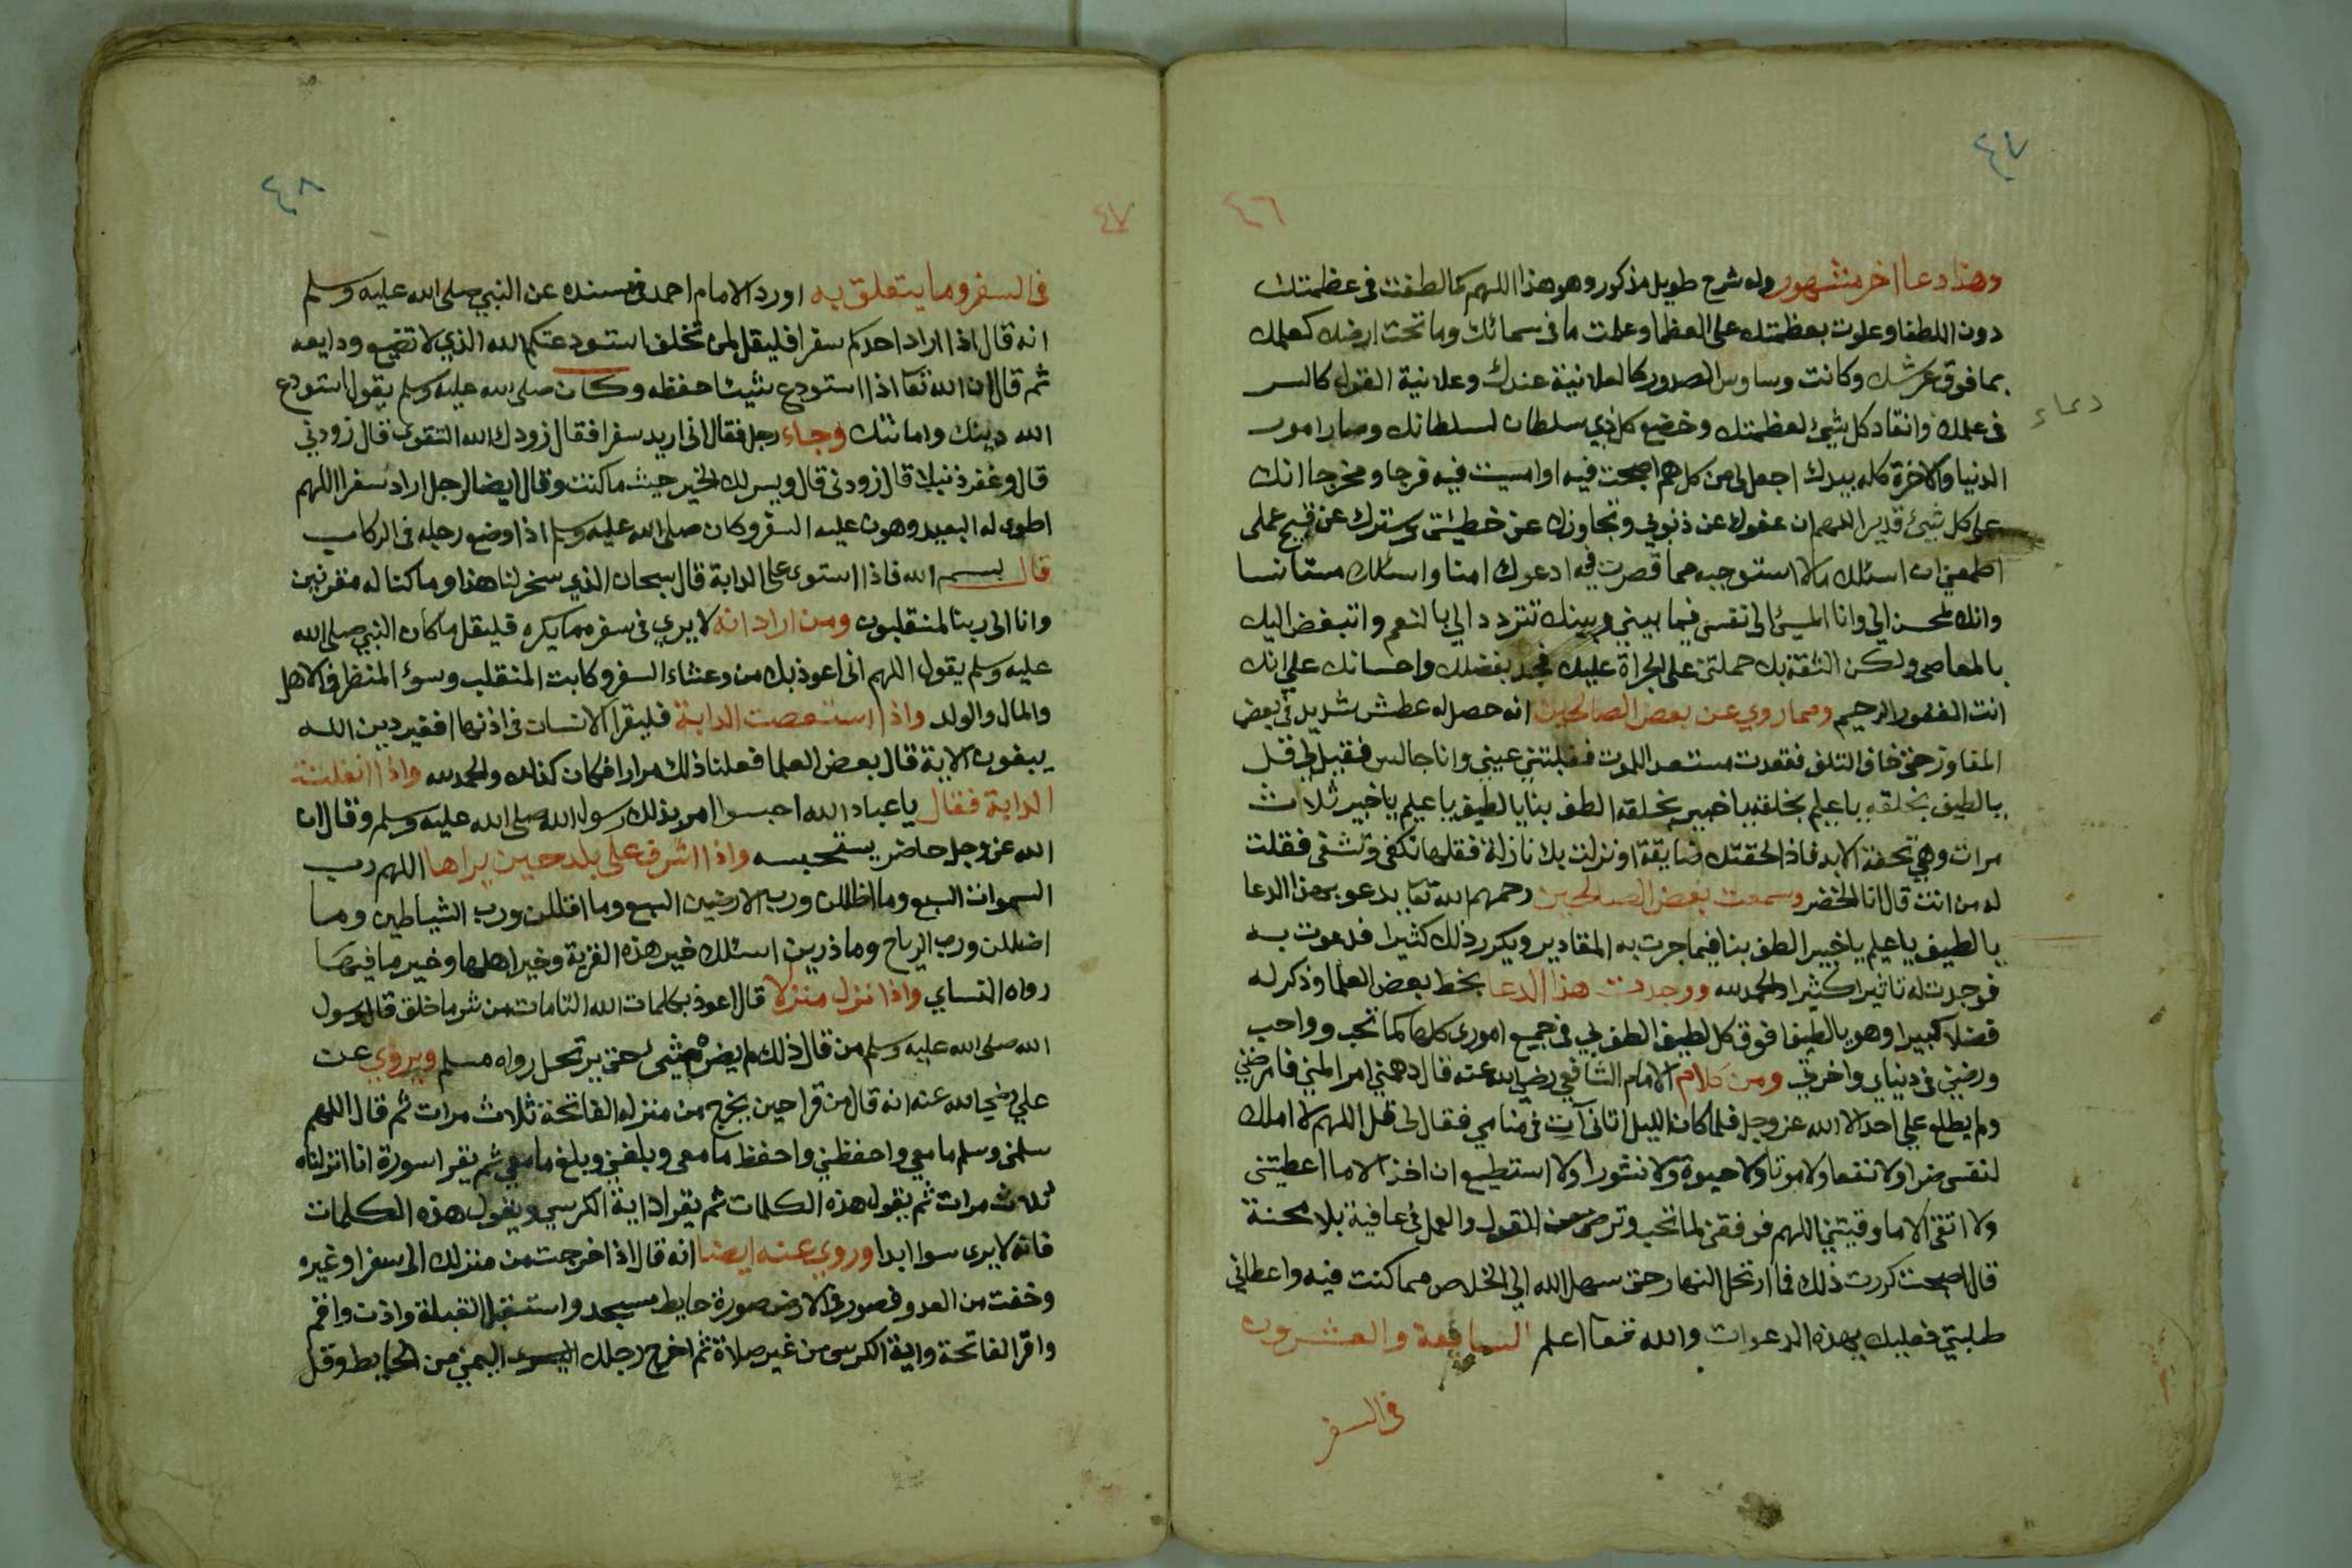 ٤٧
٤٦
وهذا دعا اخر مشهور وله شرح طويل مذكور وهو هذا اللهم كما لطفت فى عظمتك
دون اللطفا وعلوت بعظمتك على العظما وعلمت ما فى سمائك وما تحت ارضك كعلمك
بما فوق عرشك وكانت وساوس الصدور كالعلانية عندك وعلانية القول كالسر
فى علمك وانقاد كل شيئ لعظمتك وخضع كل ذي سلطان لسلطانك وصار امور
دعاء
الدنيا والاخرة كله بيدك اجعل لى من كل هم اصبحت فيه او امسيت فيه فرجا ومخرجا انك
على كل شيئ قدير اللهم ان عفوك عن ذنوبي وتجاوزك عن خطيئتى وسترك عن قبيح عملى
اطمعني ان اسئلك مالا استوجبه مما قصرت فيه ادعوك امنا واسئلك مستانسا
وانك لمحسن الي وانا المسيئ الى نفسى فيما بيني وبينك تتردد الي بالنعم واتبغض اليك
بالمعاصى ولكن الثقة بك حملتنى على الجراة عليك فجد بفضلك واحسانك علي انك
انت الغفور الرحيم ومما روي عن بعض الصالحين انه حصل له عطش شديد في بعض
المفاوز حتى خاف التلف فقعدت مستعد اللموت فغلبتني عيني وانا جالس فقيل لي قل
يالطيف بخلقه ياعليم بخلقه ياخبير بخلقه الطف بنا يالطيف ياعليم ياخبير ثلاث
مرات وهي تحفة الابد فاذا لحقتك ضايقة او نزلت بك نازلة فقلها تكفى وتشفى فقلت
له من انت قال انا الخضر وسمعت بعض الصالحين رحمهم الله تعا يدعو بهذا الدعا
يالطيف ياعليم ياخبير الطف بنا فيما جرت به المقادير ويكرر ذلك كثيرا فدعوت به
فوجدت له تاثيرا كثيرا والحمد لله ووجدت هذا الدعا بخط بعض العلما وذكر له
فضلا كبيرا وهو يالطيفا فوق كل لطيف الطف بي فى جميع امورى كلها كما تحب وواحب
ورضني فى دنياي واخرتي ومن كلام الامام الشافعي رضي الله عنه قال دهمني امر المني فامرضني
ولم يطلع علي احد الا الله عز وجل فلما كان الليل اتانى آت فى منامي فقال لى قل اللهم لا املك
لنفسى ضرا ولا نفعا ولا موتا ولا حيوة ولا نشورا ولا استطيع ان اخذ الا ما اعطيتنى
ولا اتقى الا ما وقيتني اللهم فوفقنى لما تحب وترضى من القول والعمل في عافية بلا محنة
قال اصبحت كررت ذلك فما ارتحل النهار حتى سهل الله الي الخلاص مما كنت فيه واعطاني
طلبتي فعليك بهذه الدعوات والله تعا اعلم السابعة والعشرون
فى السفر
٤٨
٤٧
فى السفر وما يتعلق به اورد الامام احمد فى مسنده عن النبي صلى الله عليه وسلم
انه قال اذا اراد احدكم سفرا فليقل لمن تخلف استودعتكم الله الذي لا تضيع ودايعه
ثم قال ان الله تعا اذا استودع شيئا حفظه وكان صلى الله عليه وسلم يقول استودع
الله دينك وامانتك وجاء رجل فقال انى اريد سفرا فقال زودك الله التقوى قال زودني
قال وغفر ذنبك قال زودنى قال ويسر لك الخير حيث ما كنت وقال ايضا لرجل اراد سفرا اللهم
اطوى له البعيد وهون عليه السفر وكان صلى الله عليه وسلم اذا وضع رجله فى الركاب
قال بسم الله فاذا استوى على الدابة قال سبحان الذي سخر لنا هذا وما كنا له مقرنين
وانا الى ربنا لمنقلبون ومن اراد انه لا يري فى سفره ما يكره فليقل ما كان النبي صلى الله
عليه وسلم يقول اللهم انى اعوذ بك من وعثاء السفر وكابت المنقلب وسوء المنظر فى الاهل
والمال والولد واذا استصعت الدابة فليقرا الانسان فى اذنها افغير دين الله
يبغون الاية قال بعض العلما فعلنا ذلك مرارا فكان كذلك والحمد لله واذا انفلتت
الدابة فقال ياعباد الله احبسوا امر بذلك رسول الله صلى الله عليه وسلم وقال ان
الله عز وجل حاضر يستحبسه واذا اشرف على بلد حين يراها اللهم رب
السموات السبع وما اظللن ورب الارضين السبع وما اقللن ورب الشياطين وما
اضللن ورب الرياح وما ذرين اسئلك خير هذه القرية وخير اهلها وخير ما فيها
رواه النساي واذا نزل منزلا قال اعوذ بكلمات الله التامات من شر ما خلق قال رسول
الله صلى الله عليه وسلم من قال ذلك لم يضره شيئ حتى يرتحل رواه مسلم ويروي عن
علي رضي الله عنه انه قال من قرا حين يخرج من منزله الفاتحة ثلاث مرات ثم قال اللهم
سلمنى وسلم ما معي واحفظني واحفظ ما معى وبلغني وبلغ ما معي ثم يقرا سورة انا انزلناه
ثلاث مرات ثم يقول هذه الكلمات ثم يقرا اداية الكرسي ويقول هذه الكلمات
فانه لا يرى سوا ابدا وروي عنه ايضا انه قال اذا خرجت من منزلك الى سفر او غيره
وخفت من العدو فصور فى الارض صورة حايط مسجد واستقبل القبلة واذن واقم
واقرا الفاتحة واية الكرسى من غير صلاة ثم اخرج رجلك اليمني من الحايط وقل